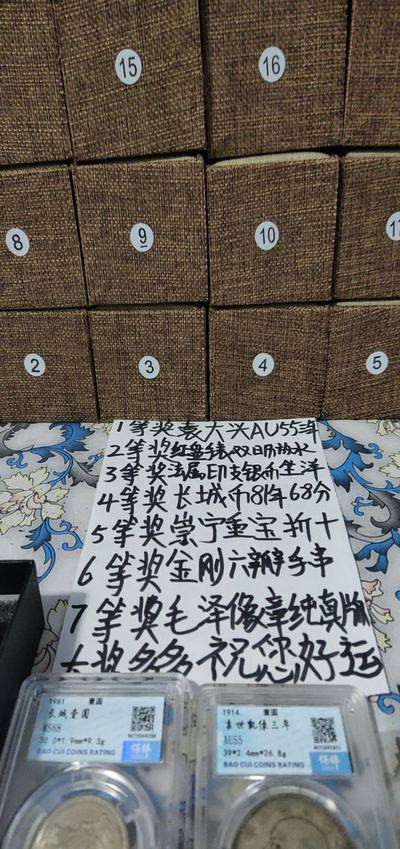 15
16
8
9
10
2
3
4
5
1等奖袁大头AU55三年
2等奖红盘手表双日历防水
3等奖法属印支银币坐洋
4等奖长城币81年68分
5等奖崇宁重宝折十
6等奖金刚六瓣手串
7等奖毛泽像章纯真版
大奖多多祝您好运
1981 壹圆
长城壹圆
MS68
30.0*1.9mm*9.3g
BAO CUI COINS RATING
保粹
1914 壹圆
袁世凯像三年
AU55
39*2.4mm*26.8g
BAO CUI COINS RATING
保粹